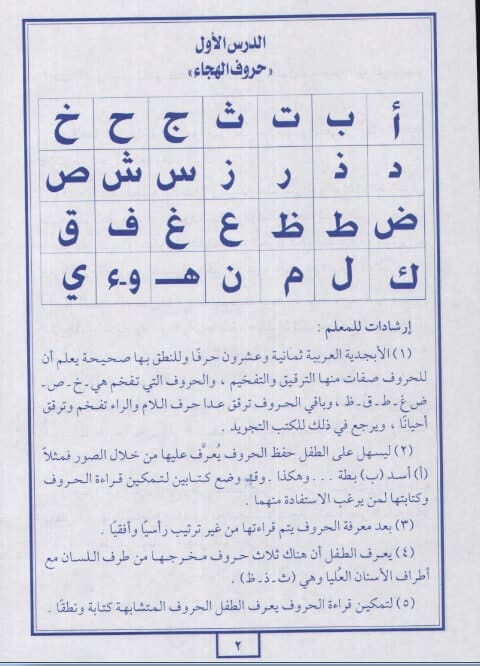 الدرس الأول
«حروف الهجاء»
أ ب ت ث ج ح خ
د ذ ر ز س ش ص
ض ط ظ ع غ ف ق
ك ل م ن هـ و-ء ي
إرشادات للمعلم :
(١) الأبجدية العربية ثمانية وعشرون حرفًا وللنطق بها صحيحة يعلم أن
للحروف صفات منها الترقيق والتفخيم ، والحروف التي تفخم هي -خ-ص-
ض-غ-ط-ق-ظ ، وباقي الحروف ترقق عدا حرف اللام والراء تفخم وترقق
أحيانًا ، ويرجع في ذلك للكتب التجويد .
(٢) ليسهل على الطفل حفظ الحروف يُعرَّف عليها من خلال الصور فمثلاً
(أ) أسد (ب) بطة . . . وهكذا . وقد وضع كتابين لتمكين قراءة الحروف
وكتابتها لمن يرغب الاستفادة منهما .
(٣) بعد معرفة الحروف يتم قراءتها من غير ترتيب رأسيًا وأفقيًا .
(٤) يعرف الطفل أن هناك ثلاث حروف مخرجها من طرف اللسان مع
أطراف الأسنان العُليا وهي (ث-ذ-ظ) .
(٥) لتمكين قراءة الحروف يعرف الطفل الحروف المتشابهة كتابة ونطقًا .
٢